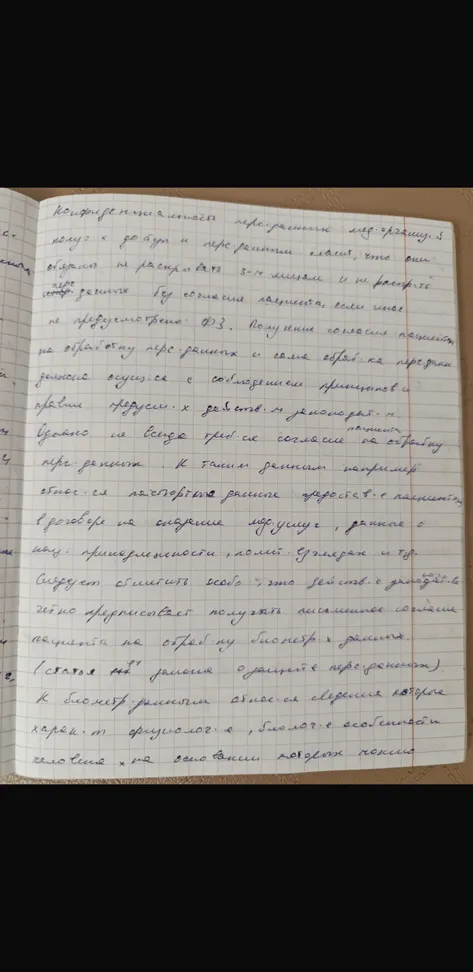 Конфиденциальность перс. данных мед. организ. з
получ-х доступ к перс. данным означ, что они
обязаны не раскрывать 3-м лицам и не распр-ть
перс
данных без согласия пациента, если иное
не предусмотрено ФЗ. Получение согласия пациента
на обработку перс. данных и сама обраб-ка перс. данн
должна осущ-ся с соблюдением принципов и
правил предусм-х действ-м законодат-м.
Однако не всегда треб-ся согласие пациента на обработку
перс. данных. К таким данным например
относ-ся паспортные данные предостав-е пациентом
в договоре на оказание мед. услуг, данные о
нац. принадлежности, полит. взглядах и тд.
Следует отметить особо, что действ-е законодат-во
четко предписывает получать письменное согласие
пациента на обраб-ку биометр-х данных.
(статья 11 закона о защите перс. данных).
К биометр. данным относ-ся сведения которые
харак-т физиолог-е, биолог-е особенности
человека, на основании которых можно